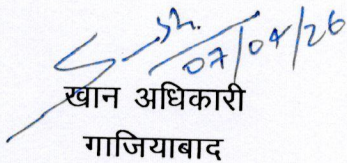 07/04/26
खान अधिकारी
गाजियाबाद